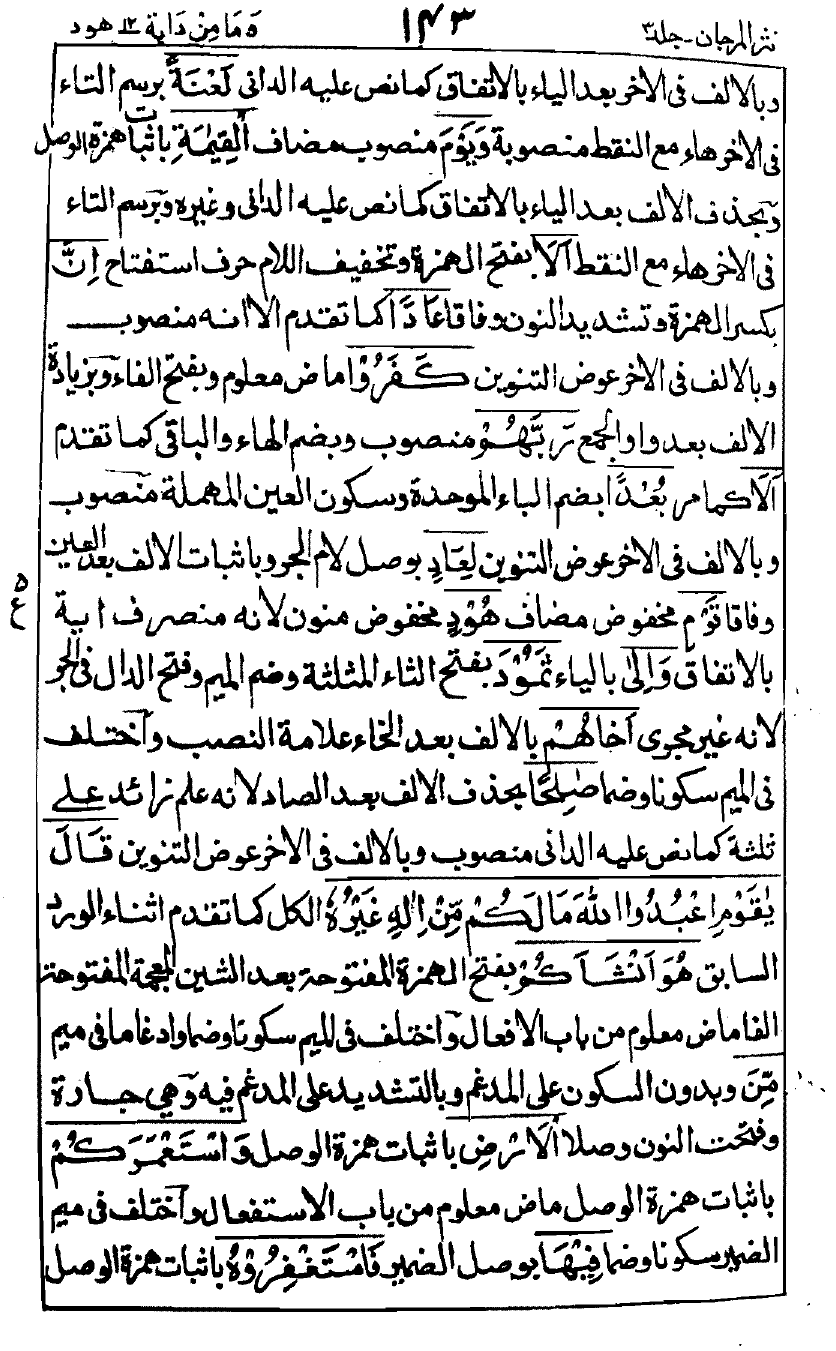 نثر المرجان - جلد ٣ ١٤٣ ومامن دابة ١٢ هود
وبالالف فى الاخر بعد الياء بالاتفاق كما نص عليه الدانى لَعْنَةً برسم التاء
فى الاخر هاء مع النقط منصوبة وَيَوْمَ منصوب مضاف الْقِيٰمَةِ باثبات همزة الوصل
وبحذف الالف بعد الياء بالاتفاق كما نص عليه الدانى وغيره وبرسم التاء
فى الاخر هاء مع النقط اَلَا بفتح الهمزة وتخفيف اللام حرف استفتاح اِنَّ
بكسر الهمزة وتشديد النون وفاقا عَادًا كما تقدم الا انه منصوب
وبالالف فى الاخر عوض التنوين كَفَرُوْا ماض معلوم وبفتح الفاء وبزيادة
الالف بعد واو الجمع رَبَّهُمْ منصوب وبضم الهاء والباقى كما تقدم
اَلَا كما مر بُعْدًا بضم الباء الموحدة وسكون العين المهملة منصوب
وبالالف فى الاخر عوض التنوين لِعَادٍ بوصل لام الجر وباثبات الالف بعد العين
وفاقا قَوْمِ مخفوض مضاف هُوْدٍ مخفوض منون لانه منصرف اية
بالاتفاق وَاِلٰى بالياء ثَمُوْدَ بفتح الثاء المثلثة وضم الميم وفتح الدال فى الجر
لانه غير مجرى اَخَاهُمْ بالالف بعد الخاء علامة النصب واختلف
فى الميم سكونا وضما صٰلِحًا بحذف الالف بعد الصاد لانه علم زائد على
ثلثة كما نص عليه الدانى منصوب وبالالف فى الاخر عوض التنوين قَالَ
يٰقَوْمِ اعْبُدُوا اللهَ مَا لَكُمْ مِّنْ اِلٰهٍ غَيْرُهٗ الكل كما تقدم اثناء الورد
السابق هُوَ اَنْشَاَكُمْ بفتح الهمزة المفتوحة بعد الشين المعجمة المفتوحة
الفا ماض معلوم من باب الافعال واختلف فى الميم سكونا وضما وادغاما فى ميم
مِّنَ وبدون السكون على المدغم وبالتشديد على المدغم فيه وهى جارة
وفتحت النون وصلا الْاَرْضِ باثبات همزة الوصل وَاسْتَعْمَرَكُمْ
باثبات همزة الوصل ماض معلوم من باب الاستفعال واختلف فى ميم
الضمير سكونا وضما فِيْهَا بوصل الضمير فَاسْتَغْفِرُوْهُ باثبات همزة الوصل
٥
ع